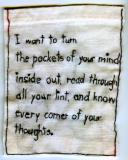 I want to turn
the pockets of your mind
inside out, read through
all your lint, and know
every corner of your
thoughts.